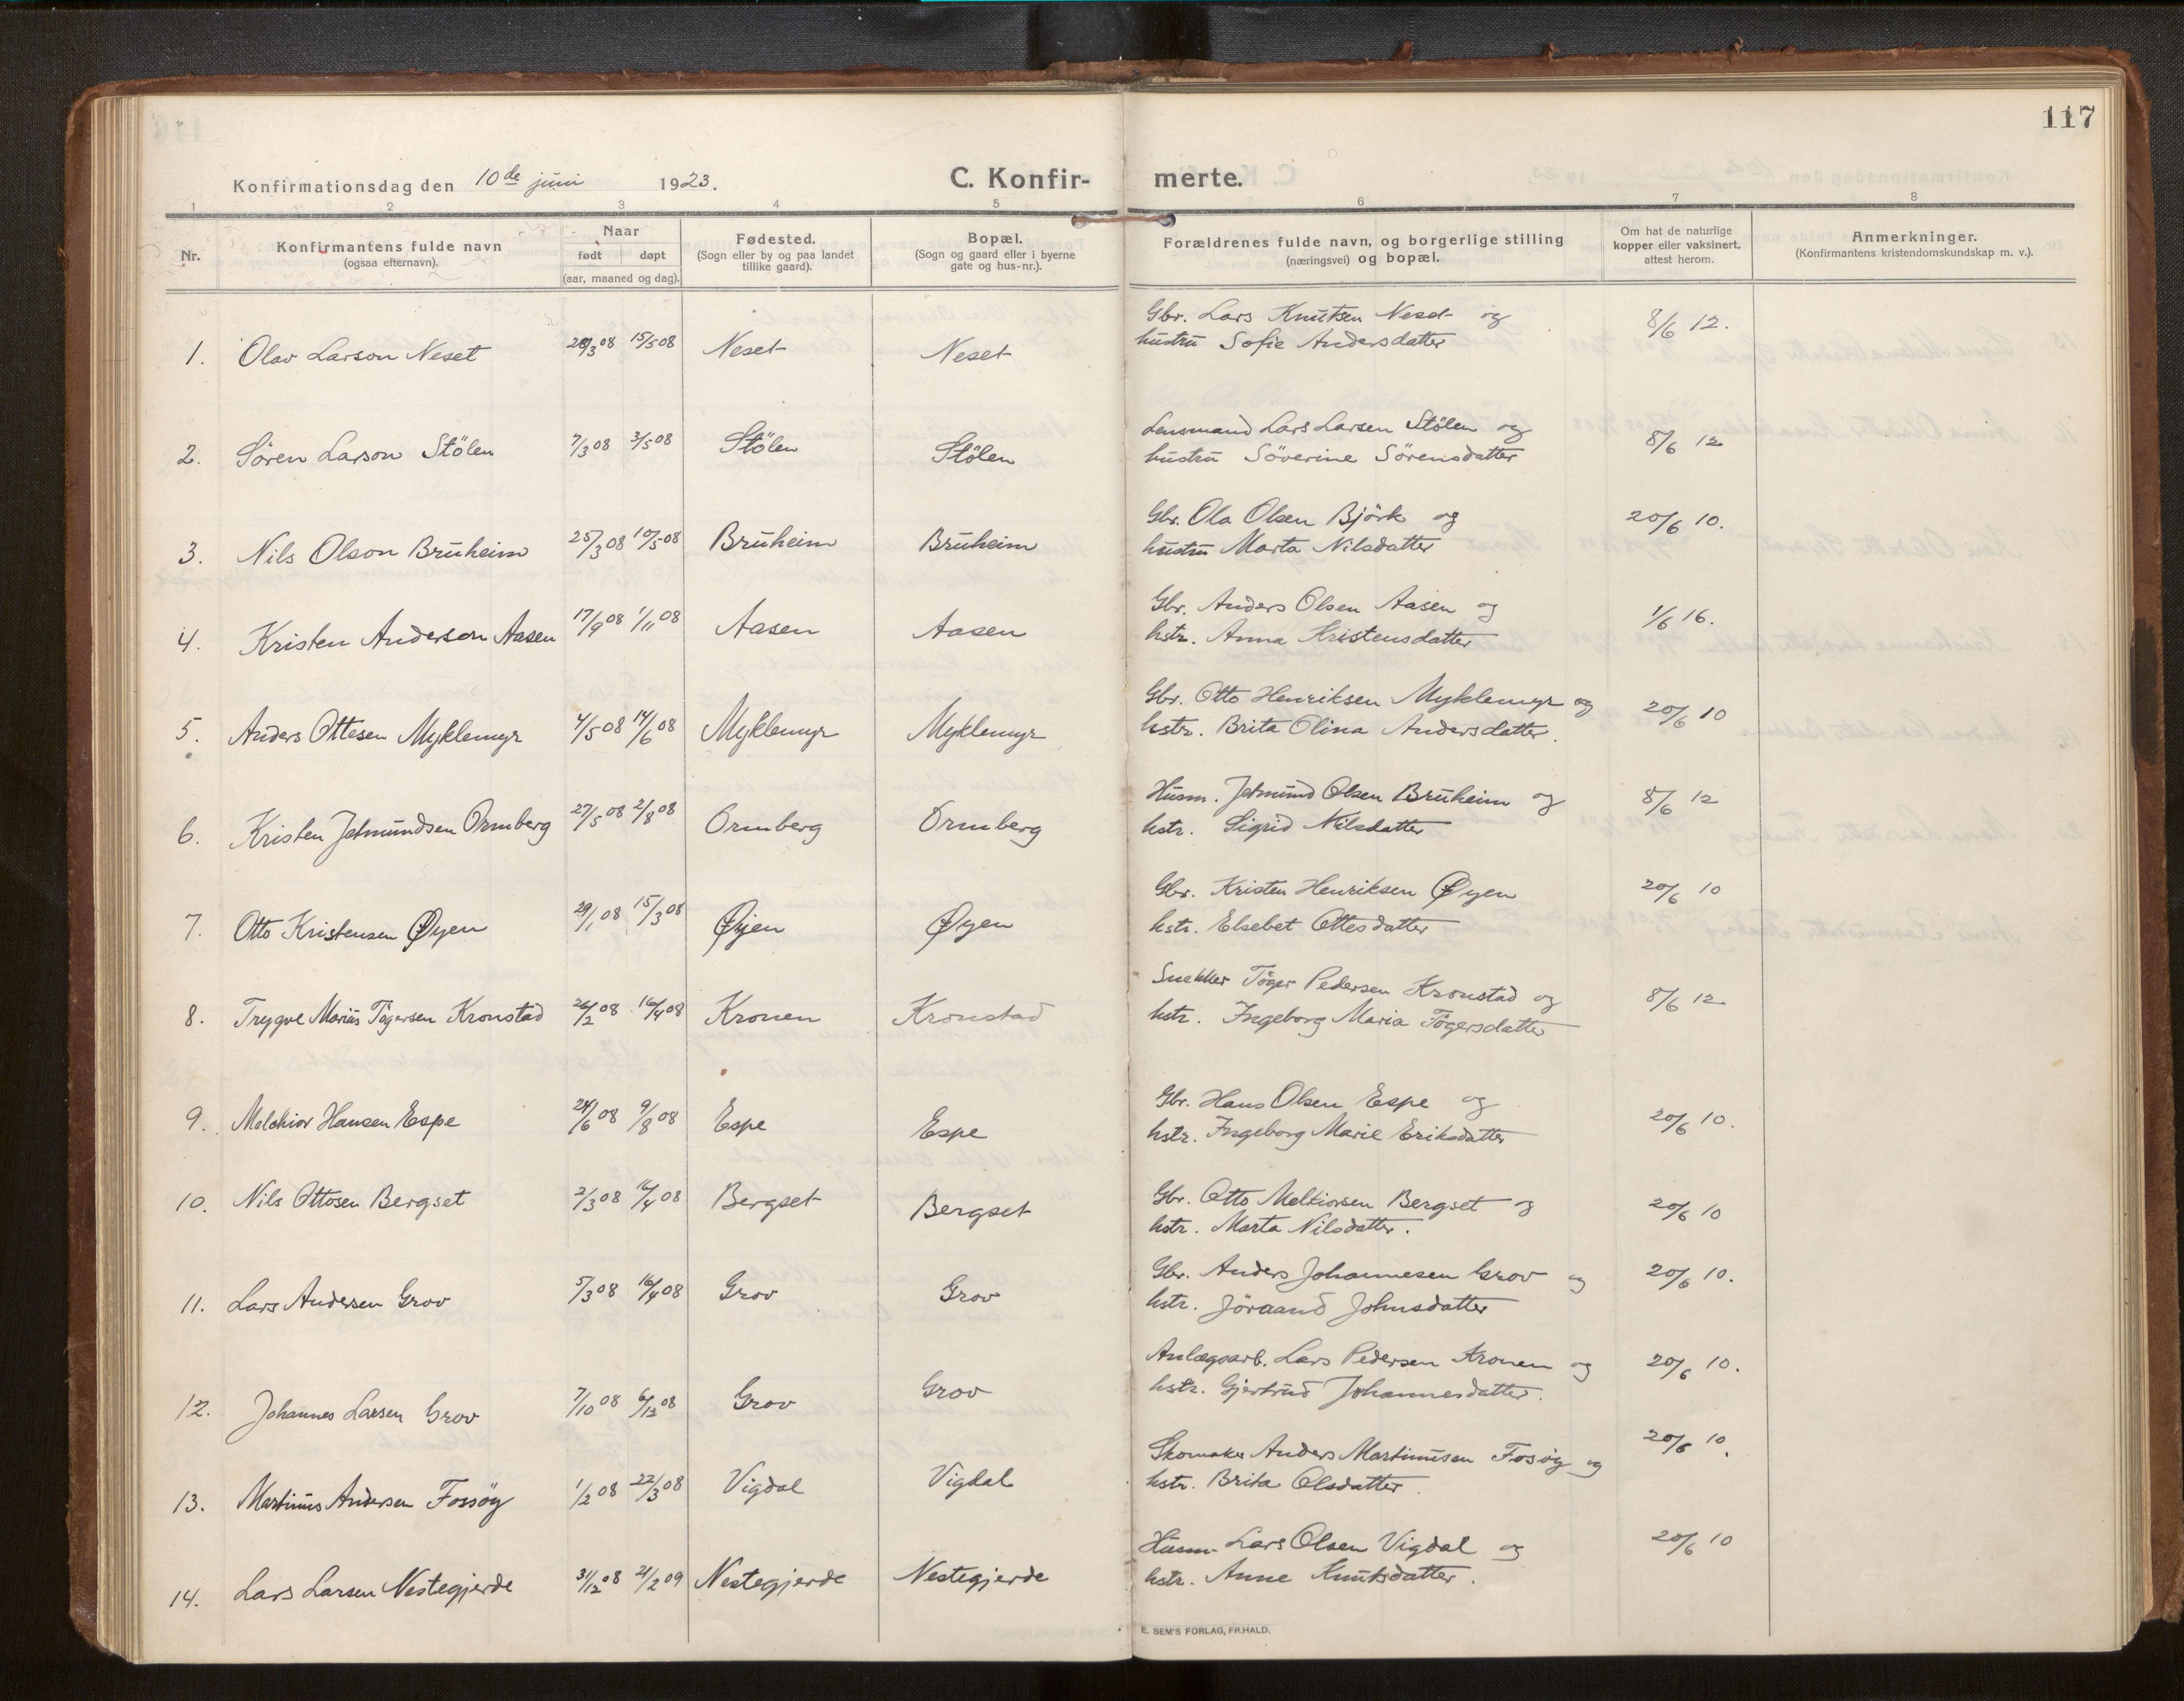 117
Konfirmationsdag den 10de juni 1923.
C. Konfirmerte.
1 2 3 4 5 6 7 8
Nr.
Konfirmantens fulde navn
(ogsaa efternavn).
Naar
født døpt
(aar, maaned og dag).
Fødested.
(Sogn eller by og paa landet
tillike gaard).
Bopæl.
(Sogn og gaard eller i byerne
gate og hus-nr.).
Forældrenes fulde navn, og borgerlige stilling
(næringsvei) og bopæl.
Om hat de naturlige
kopper eller vaksinert,
attest herom.
Anmerkninger.
(Konfirmantens kristendomskundskap m. v.).
Gbr. Lars Knutsen Neset og 8/6 12.
1. Olav Larson Neset 28/3 08 15/5 08 Neset Neset hustru Sofie Andersdatter
Lensmand Lars Larsen Stölen og
2. Sören Larson Stölen 7/3 08 3/5 08 Stölen Stölen hustru Söverine Sörensdatter 8/6 12
Gbr. Ola Olsen Björk og 20/6 10.
3. Nils Olson Bruheim 25/3 08 10/5 08 Bruheim Bruheim hustru Marta Nilsdatter
Gbr. Anders Olsen Aasen og 1/6 16.
4. Kristen Anderson Aasen 17/9 08 1/11 08 Aasen Aasen hstr. Anna Kristensdatter
Gbr. Otto Henriksen Myklemyr og 20/6 10
5. Anders Ottesen Myklemyr 4/5 08 14/6 08 Myklemyr Myklemyr hstr. Brita Olina Andersdatter.
Husm. Jetmund Olsen Bruheim og 8/6 12
6. Kristen Jetmundsen Ormberg 27/5 08 2/8 08 Ormberg Ormberg hstr. Sigrid Nilsdatter
Gbr. Kristen Henriksen Øyen 20/6 10
7. Otto Kristensen Øyen 29/1 08 15/3 08 Øyen Øyen hstr. Elsebet Ottesdatter
Snekker Töger Pedersen Kronstad og 8/6 12
8. Trygve Marius Tögersen Kronstad 26/2 08 16/4 08 Kronen Kronstad hstr. Ingeborg Maria Tögersdatter
Gbr. Hans Olsen Espe og
9. Melchior Hansen Espe 24/6 08 9/8 08 Espe Espe hstr. Ingeborg Marie Eriksdatter 20/6 10.
Gbr. Otto Melkiorsen Bergset og 20/6 10
10. Nils Ottosen Bergset 2/3 08 16/4 08 Bergset Bergset hstr. Marta Nilsdatter.
Gbr. Anders Johannesen Grov og 20/6 10.
11. Lars Andersen Grov 5/3 08 16/4 08 Grov Grov hstr. Jöraand Johnsdatter
Anlægsarb. Lars Pedersen Kronen og 20/6 10.
12. Johannes Larsen Grov 7/10 08 6/12 08 Grov Grov hstr. Gjertrud Johannesdatter.
Skomaker Anders Martinusen Fosöy og 20/6 10.
13. Martinus Andersen Fossöy 1/2 08 22/3 08 Vigdal Vigdal hstr. Brita Olsdatter.
Husm. Lars Olsen Vigdal og 20/6 10
14. Lars Larsen Nestegjerde 31/12 08 21/2 09 Nestegjerde Nestegjerde hstr. Anne Knutsdatter.
E. SEM'S FORLAG, FR.HALD.